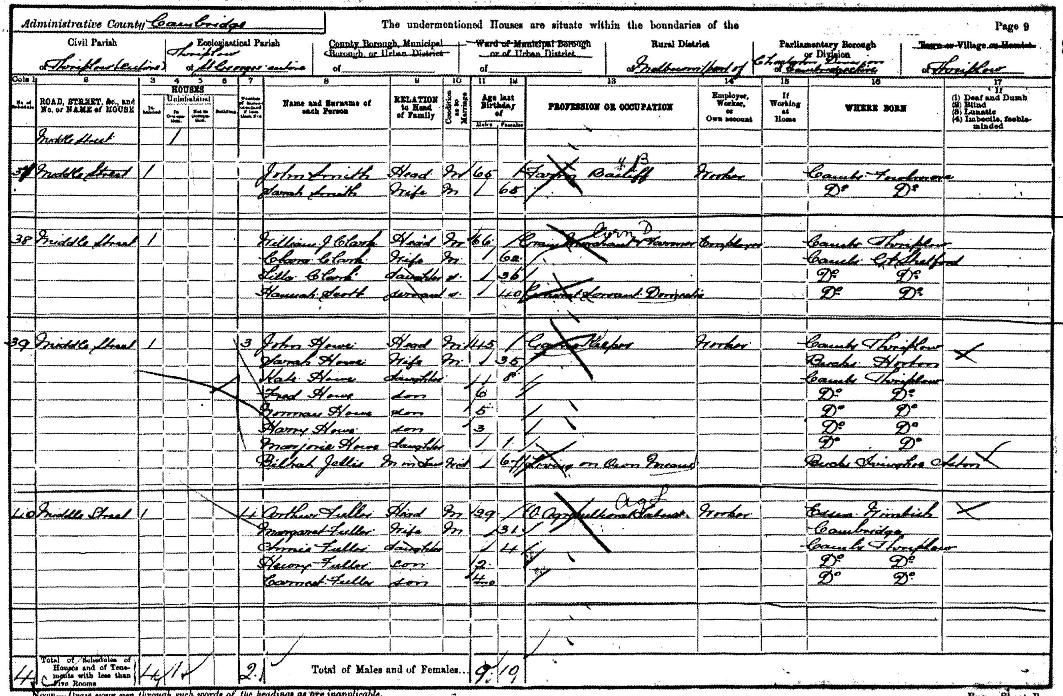 Administrative County Cambridge
The undermentioned Houses are situate within the boundaries of the
Page 9
Civil Parish
of Thriplow (entire)
Ecclesiastical Parish
Thriplow
of St Georges entire
County Borough, Municipal
Borough or Urban District
of
Ward of Municipal Borough
or of Urban District
of
Rural District
of Melbourn (part of
Parliamentary Borough
or Division
of
Town or Village or Hamlet
of Thriplow
Cols 1 2 3 4 5 6 7 8 9 10 11 12 13 14 15 16 17
ROAD, STREET, &c., and No. or NAME of HOUSE
HOUSES
Uninhabited
Building
Name and Surname of each Person
RELATION to Head of Family
Condition as to Marriage
Age last Birthday of
Males Females
PROFESSION OR OCCUPATION
Employer, Worker, or Own account
If Working at Home
WHERE BORN
If
(1) Deaf and Dumb
(2) Blind
(3) Lunatic
(4) Imbecile, feeble-minded
Middle Street 1
37 Middle Street 1 John Smith Head M 65 Farm Bailiff Worker Cambs
Sarah Smith Wife M 65 Do Do
38 Middle Street 1 William J Clark Head M 66 Corn D Merchant & Farmer Employer Cambs Thriplow
Clara Clark Wife M 62 Cambs Gt Shelford
Clark daughter S 36 Do Do
Hannah Scott servant S 40 General Servant Domestic Do Do
39 Middle Street 1 3 John Howe Head M 45 Keeper Worker Cambs Thriplow
Sarah Howe Wife M 35 Bucks Horton
Kate Howe daughter 8 Cambs Thriplow
Fred Howe son 6 Do Do
Norman Howe son 5 Do Do
Harry Howe son 3 Do Do
Marjorie Howe daughter 1 Do Do
Bilhah Jellis M in Law Wid 67 Living on Own Means Bucks Ivinghoe Aston
40 Middle Street 1 4 Arthur Fuller Head M 29 Ag L Agricultural Labourer Worker Essex Wimbish
Margaret Fuller Wife M 31 Cambridge
Annie Fuller daughter 4 Cambs Thriplow
Henry Fuller son 2 Do Do
Earnest Fuller son Do Do
4 Total of Schedules of Houses and of Tenements with less than Five Rooms 4 1 2 Total of Males and of Females... 9 10